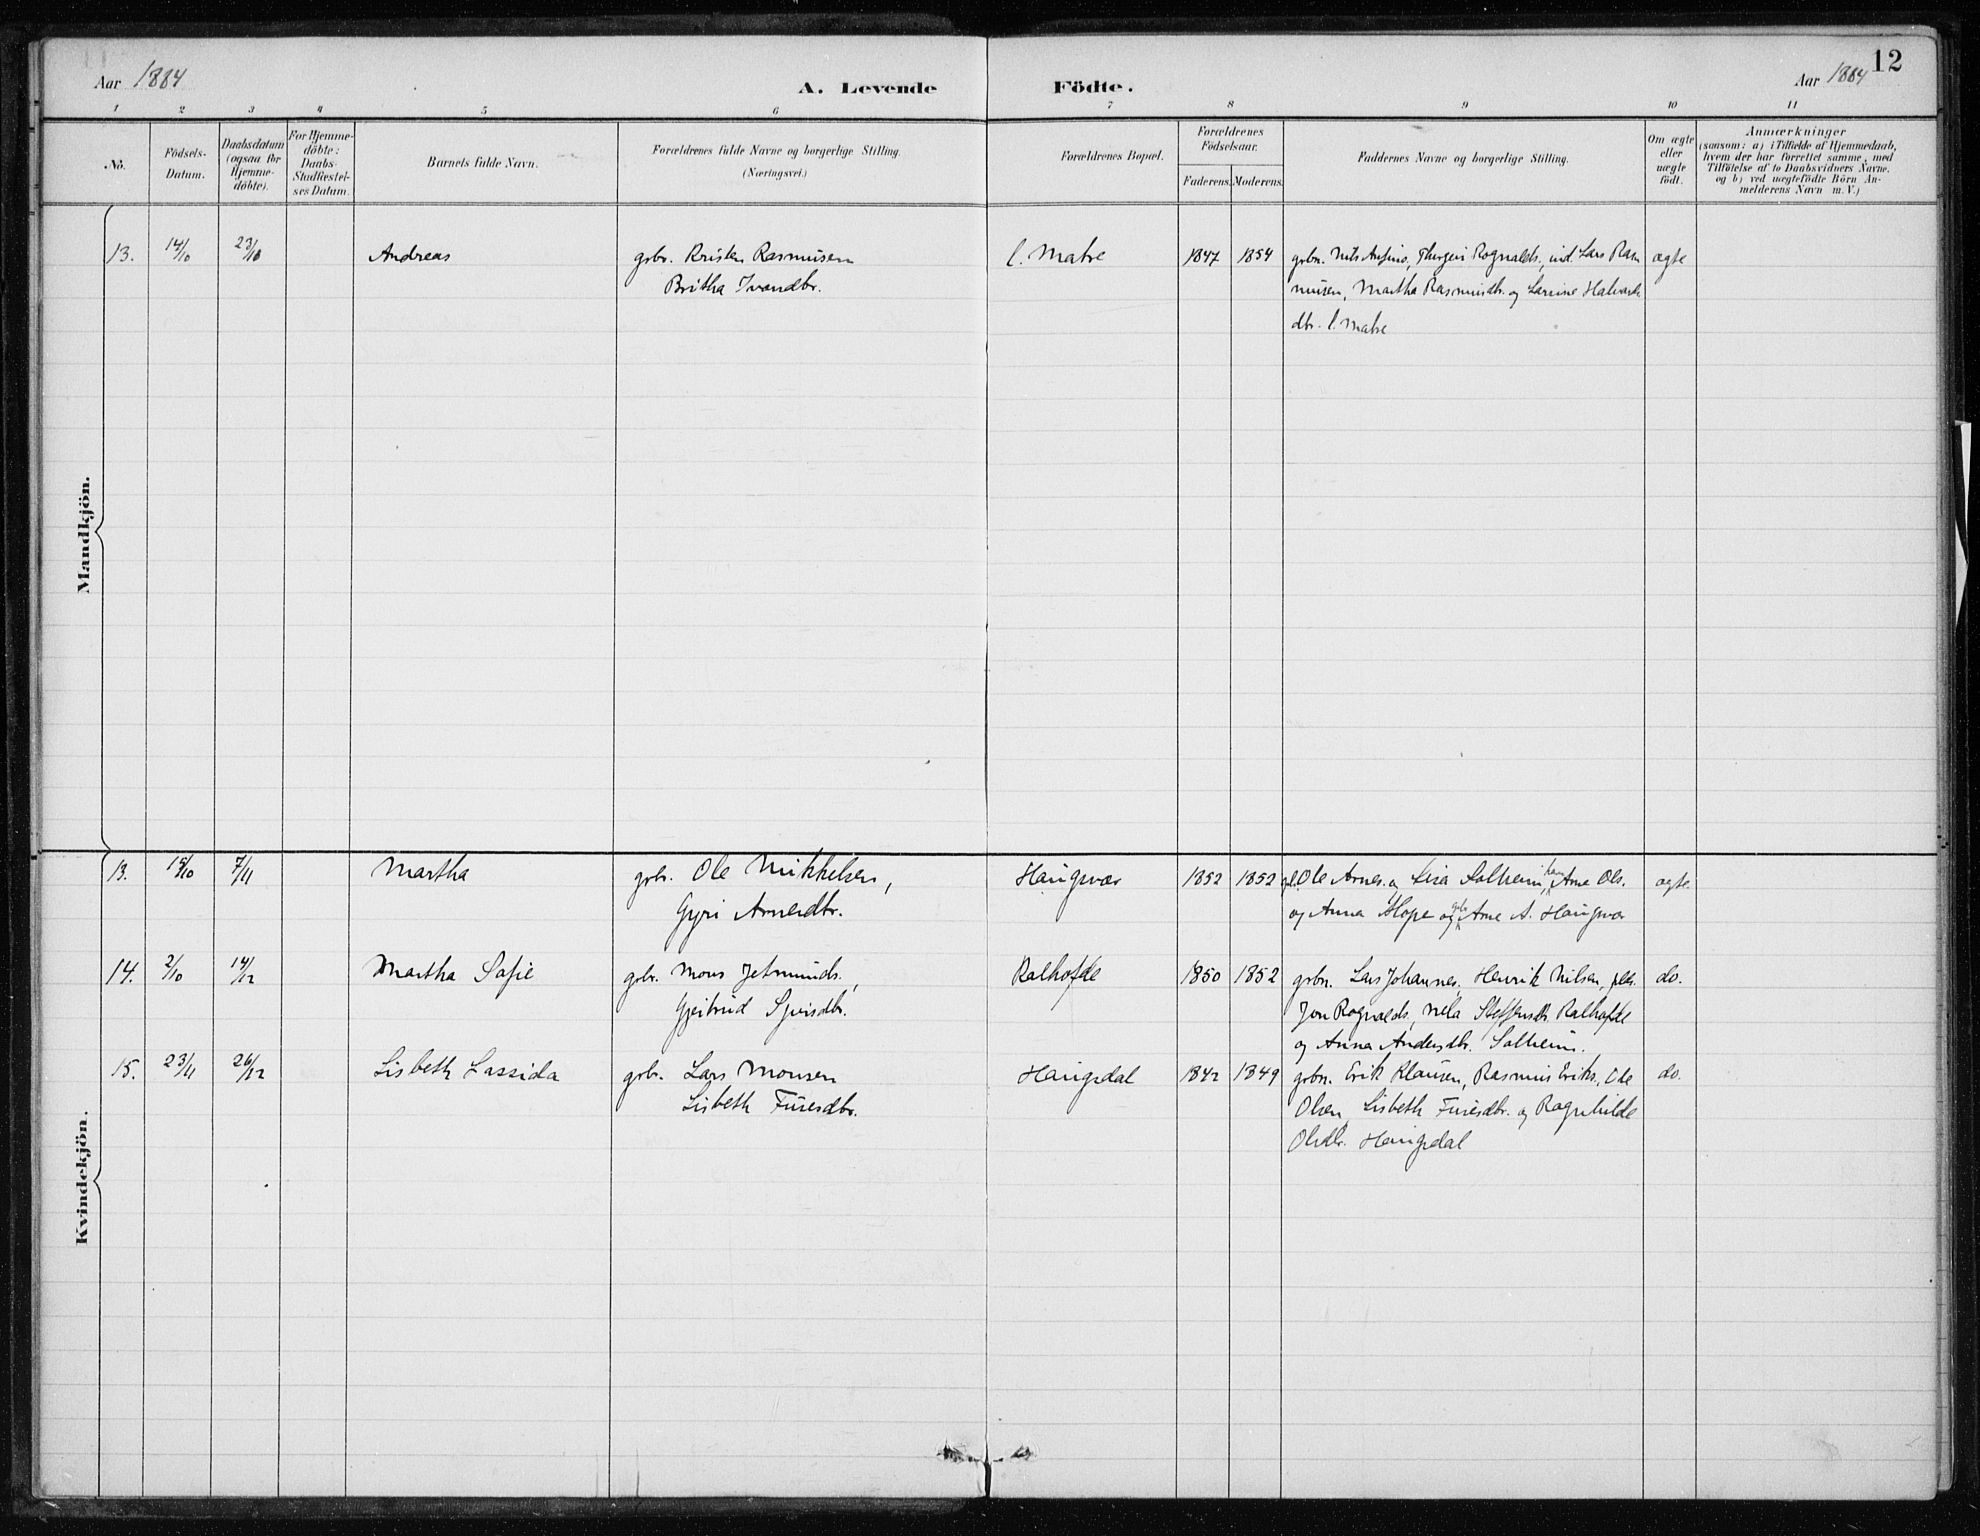 Aar 1884
A. Levende Födte.
Aar 1884
12
1 2 3 4 5 6 7 8 9 10 11
No.
Födsels-
Datum.
Daabsdatum
(ogsaa for
Hjemme-
döbte).
For Hjemme-
döbte:
Daabs-
Stadfæstel-
ses Datum.
Barnets fulde Navn.
Forældrenes fulde Navne og borgerlige Stilling.
(Næringsvei.)
Forældrenes Bopæl.
Forældrenes
Födselsaar.
Faderens. Moderens.
Faddernes Navne og borgerlige Stilling.
Om ægte
eller
uægte
födt.
Anmærkninger
(saasom: a) i Tilfælde af Hjemmedaab,
hvem der har forrettet samme, med
Tilföielse af to Daabsvidners Navne.
og b) ved uægtefödte Börn An-
melderens Navn m. V.)
Mandkjön.
13. 14/10 23/10 Andreas grbr. Kristen Rasmusen l. Matre 1847 1854 grbn. Nils Rognalds., ind. Lars Ras ægte
Britha Ivarsdtr. musen, Martha Rasmusdtr. og Halvards
dtr. l. Matre
Kvindekjön.
13. 15/10 7/11 Martha grbr. Ole Mikkelsen, Haugsvær 1852 1852 Ole Arnes. og Lisa Solheim, Arne Ols. ægte.
Gyri Arnesdtr. og Anna Hope og grbr. Arne A. Haugsvær
14. 2/10 14/12 Martha Sofie grbr. Mons Jetmunds., 1850 1852 grbn. Lars Johannes., Henrik Nilsen, do.
Gjertrud Sjursdtr. Jon Rognalds., Nela Steffensdtr.
og Anna Andersdtr. Solheim.
15. 23/11 26/12 Lisbeth Lassida grbr. Lars Monsen Haugsdal 1842 1849 grbn. Erik Klausen, Rasmus Eriks., Ole do.
Lisbeth Furesdtr. Olsen, Lisbeth Furesdtr. og Ragnhilde
Olsdtr. Haugsdal